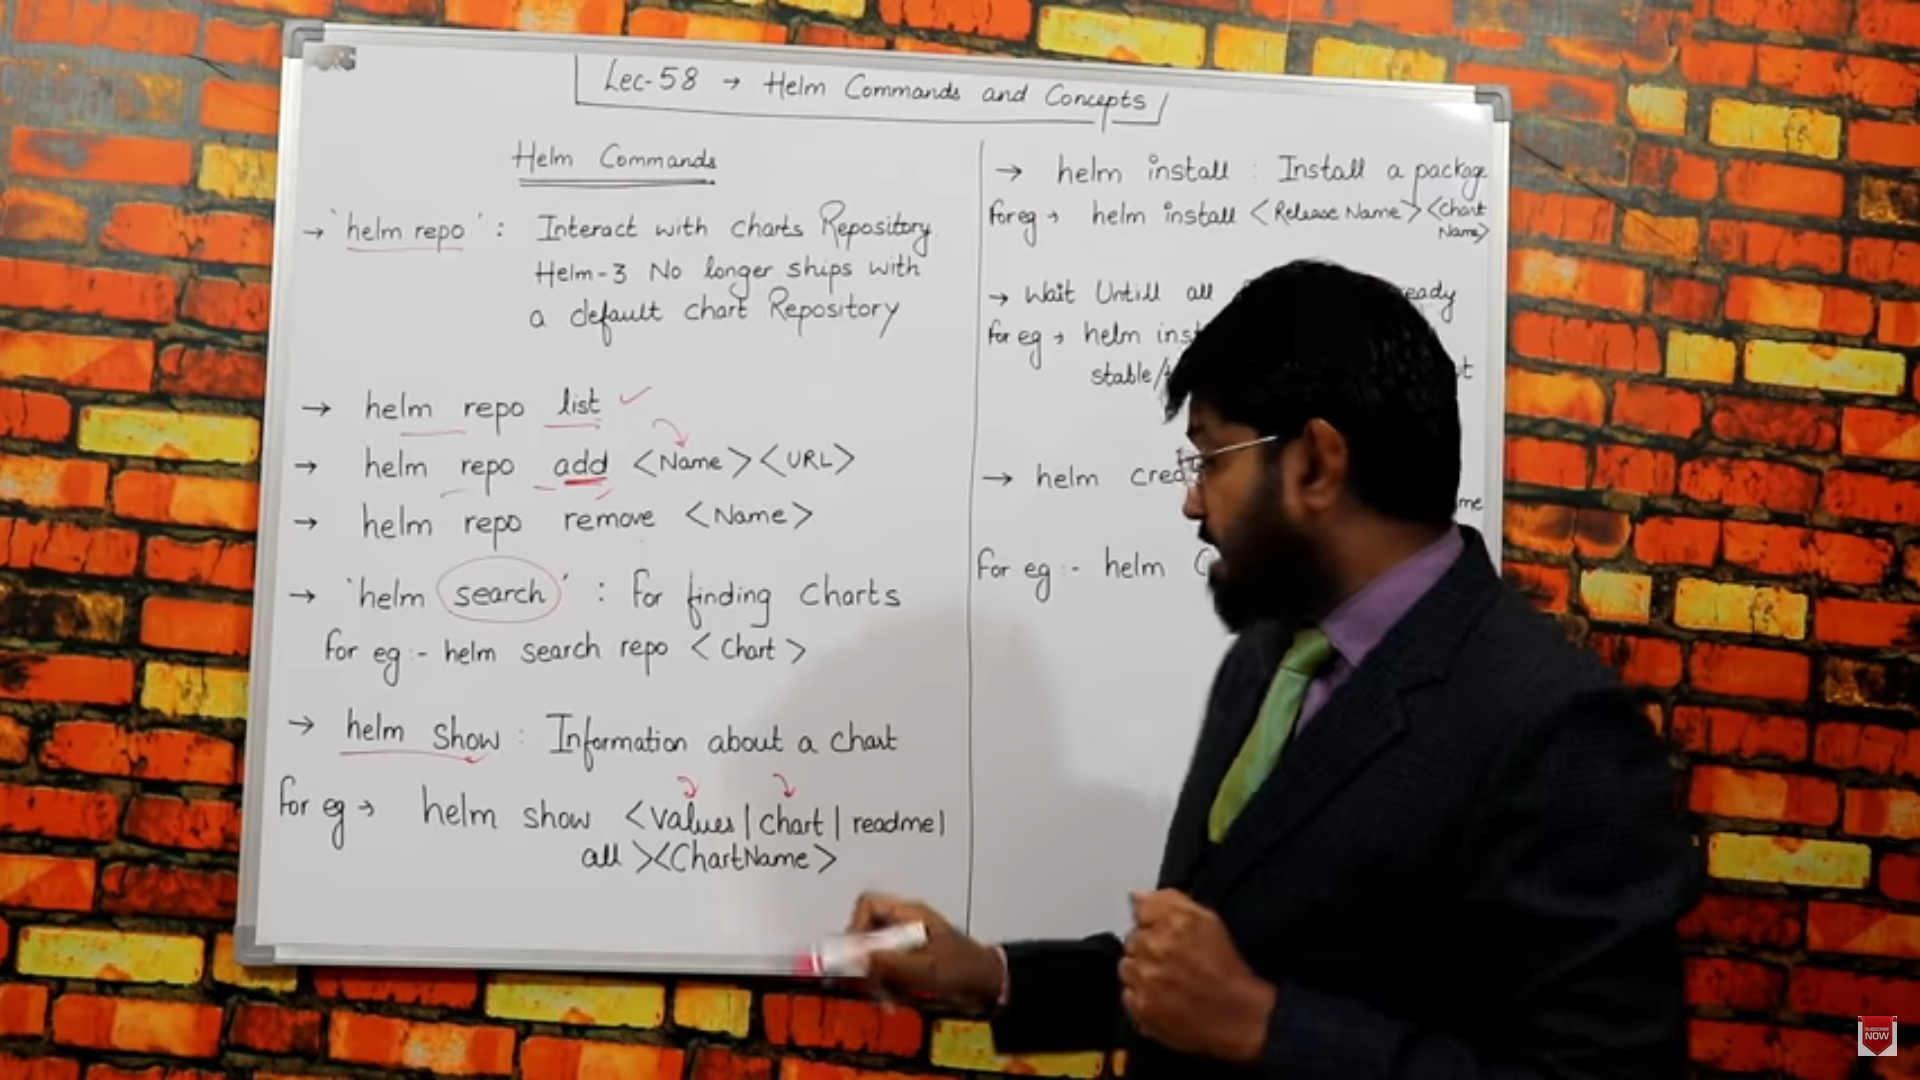 Lec-58 → Helm Commands and Concepts
Helm Commands
→ 'helm repo' : Interact with charts Repository.
Helm-3 No longer ships with
a default chart Repository
→ helm repo list ✓
→ helm repo add <Name><URL>
→ helm repo remove <Name>
→ 'helm search' : for finding Charts
for eg :- helm search repo <Chart>
→ helm show : Information about a chart
for eg → helm show <values|chart|readme|
all><ChartName>
→ helm install : Install a package
for eg → helm install <Release Name><Chart
Name>
→ Wait Untill all
for eg → helm
stable/
→ helm
for eg :- helm
SUBSCRIBE
NOW